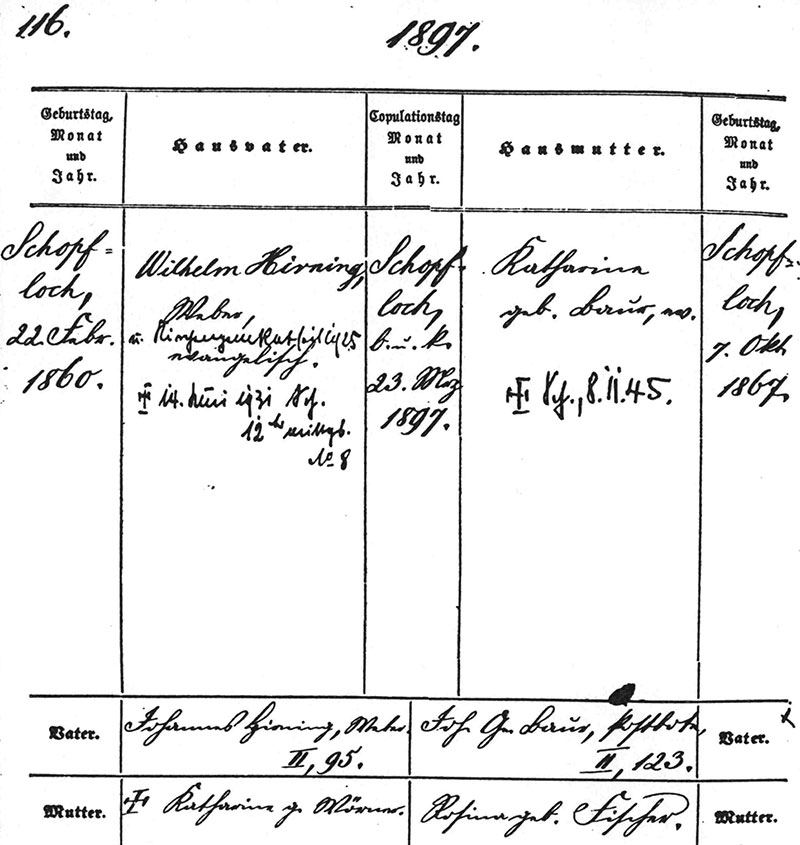 116.
1897.
Geburtstag,
Monat
und
Jahr.
Hausvater.
Copulationstag
Monat
und
Jahr.
Hausmutter.
Geburtstag,
Monat
und
Jahr.
Schopf=
loch,
22. Febr.
1860.
Wilhelm Hirning,
Weber,
u.
evangelisch.
14. Juni 1931 Sch.
12 mittgs.
No 8
Schopf-
loch,
b. u. k.
23. Mrz
1897.
Katharine
geb. Baur, ev.
Sch., 8.II.45.
Schopf=
loch,
7. Okt
1867.
Vater.
Johannes Hirning, Weber.
II, 95.
Joh. Ge. Baur, Postbote,
II, 123.
Vater.
Mutter.
Katharine g. Wörner.
Rosina geb. Fischer.
Mutter.